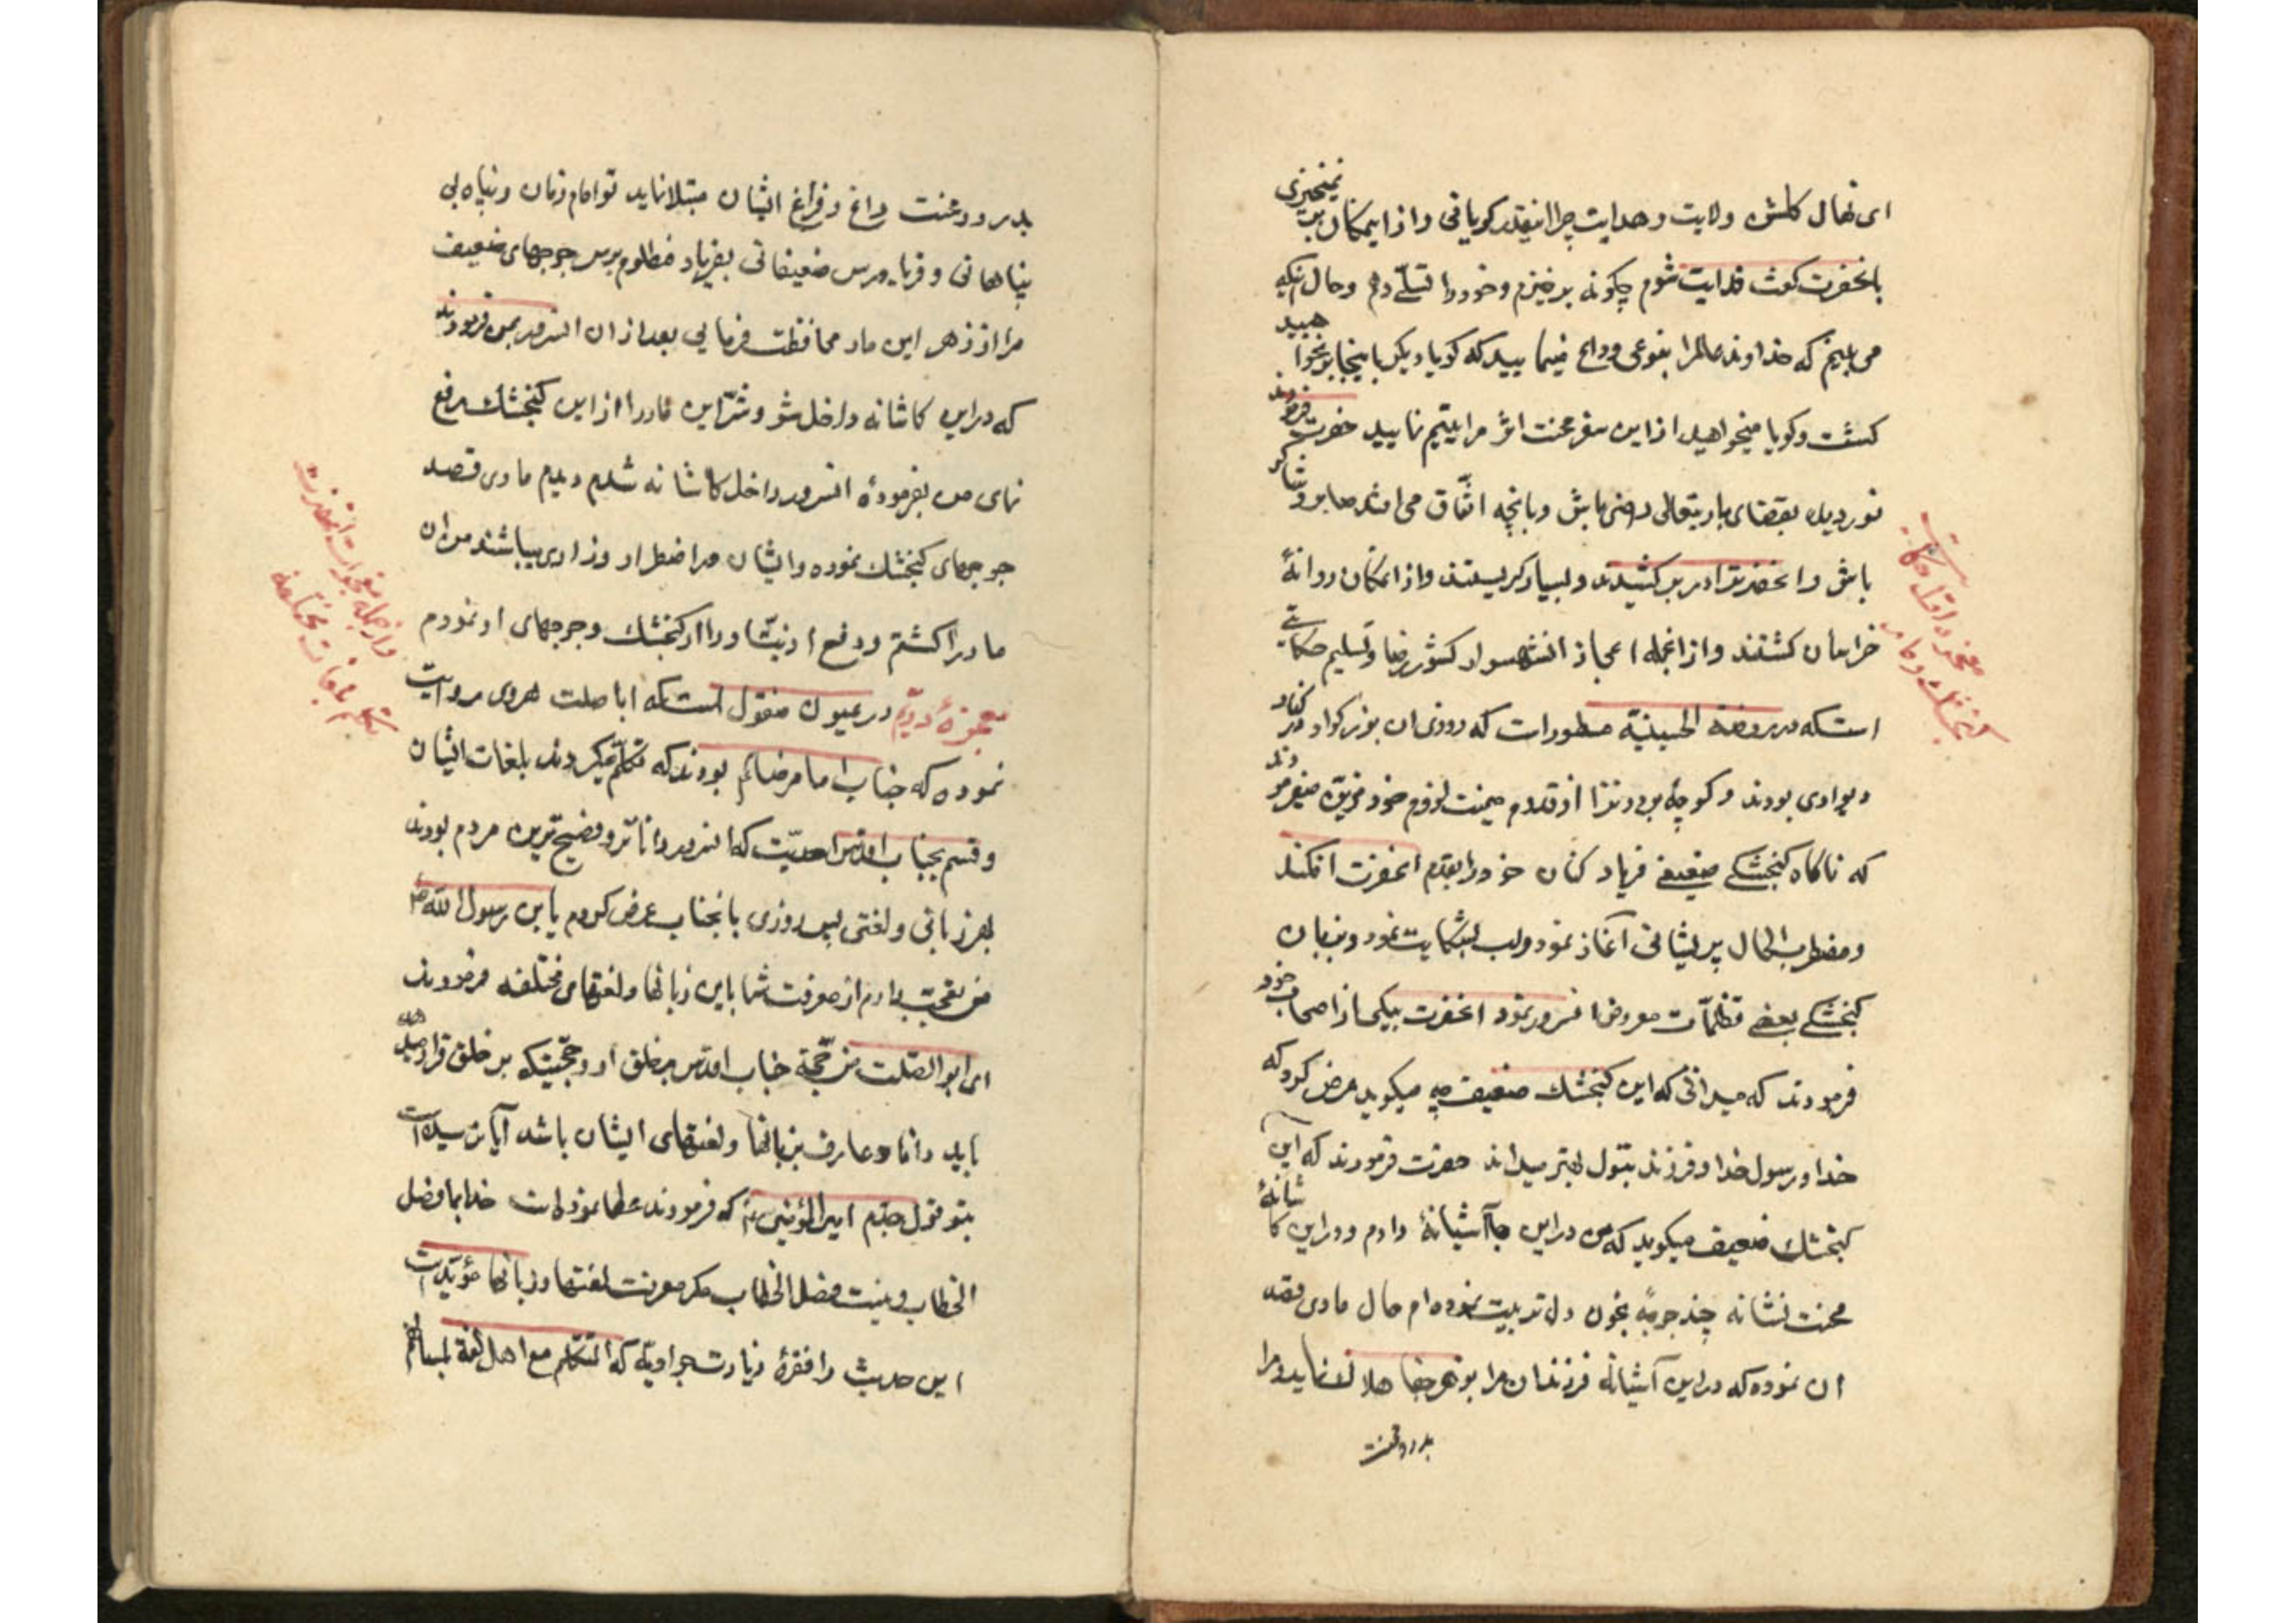 ای نهال گلشن ولایت و هدایت چرا اینقدر گریانی و از این مکان بر نمیخیزی
بانحضرت گفت فدایت شوم چگونه برخیزم و خود را تسلّی دهم و حال آنکه
می بینم که خداوند عالم را بنوعی وداع مینمایید که گویا دیگر باینجا بر نخواهید
گشت و گویا میخواهید از این سفر محنت اثر مرا یتیم نمایید حضرت فرمودند
نوردیده بقضای باریتعالی راضی باش و بانچه اتّفاق می افتد صابر و شاکر
باش و انحضرترا در بر کشیدند و بسیار گریستند و از انمکان روانهٔ
خراسان گشتند و از انجمله اعجاز انشهسوار کشور رضا و تسلیم حکایتی
استکه در روضة الحسینیّه مسطور است که روزی ان بزرگوار در کنار
دیواری بودند و کوچهٔ بردند را از قدوم میمنت لزوم خود مزیّن میفرمودند
که ناگاه گنجشکی ضعیفی فریاد کنان خود را بقدم انحضرت افکند
و مضطرب الحال پریشانی آغاز نمود و لب بشکایت نمود و بزبان
گنجشکی بعضی تظلمات معروض انسرور نمود انحضرت بیکی از اصحاب خود
فرمودند که میدانی که این گنجشک ضعیف چه میگوید عرض کرد که
خدا و رسول خدا و فرزند بتول بهتر میداند حضرت فرمودند که این
گنجشک ضعیف میگوید که من در این جا آشیانهٔ دارم و در این کاشانهٔ
محنت نشانه چند جوجهٔ بخون دل تربیت نموده ام حال ماری قصد
ان نموده که در این آشیانه فرزندان مرا بزهر جفا هلاک نماید و مرا
بدرد و محنت
معجزه اول حکایت
گنجشک و مار
بدرد و محنت داغ و فراغ ایشان مبتلا نماید تو امام زمان و پناه بی
پناهانی و فریادرس ضعیفانی بفریاد مظلوم برس جوجهای ضعیف
مرا از زهر این مار محافظت فرمایی بعد از ان انسرور بمن فرمودند
که در این کاشانه داخل شو و شرّ این مار را از این گنجشک رفع
نمای من بفرمودهٔ انسرور داخل کاشانه شدم دیدم ماری قصد
جوجهای گنجشک نموده و ایشان در اضطرار و زاری میباشند من ان
مار را کشتم و دفع اذیّت او را از گنجشک و جوجهای او نمودم
معجزهٔ دویّم در عیون منقول استکه اباصلت هروی روایت
نموده که جناب امام رضا۴م بودند که تکلّم میکردند بلغات ایشان
و قسم بجناب اقدس احدیّت که انسرور داناتر و فصیح ترین مردم بودند
بهر زبانی و لغتی پس روزی بانجناب عرض کردم یابن رسول اللّه ص
من تعجّب دارم از معرفت شما باین زبانها و لغتهای مختلفه فرمودند
ای ابو الصّلت من حجّة جناب اقدس بر خلق او و حجّتیکه بر خلق قرار دهد
باید دانا و عارف بزبانها و لغتهای ایشان باشد آیا نرسیده است
بتو قول جدّم امیر المؤمنین ع که فرمودند عطا نموده است خدا بما فصل
الخطاب و نیست فصل الخطاب مگر معرفت لغتها و زبانها مؤیّد است
این حدیث را فقرهٔ زیارت جوادیّه که التکلّم مع اهل لغة بلسانهم
و از جمله معجزات انحضرت
تکلّم بلغات مختلفه